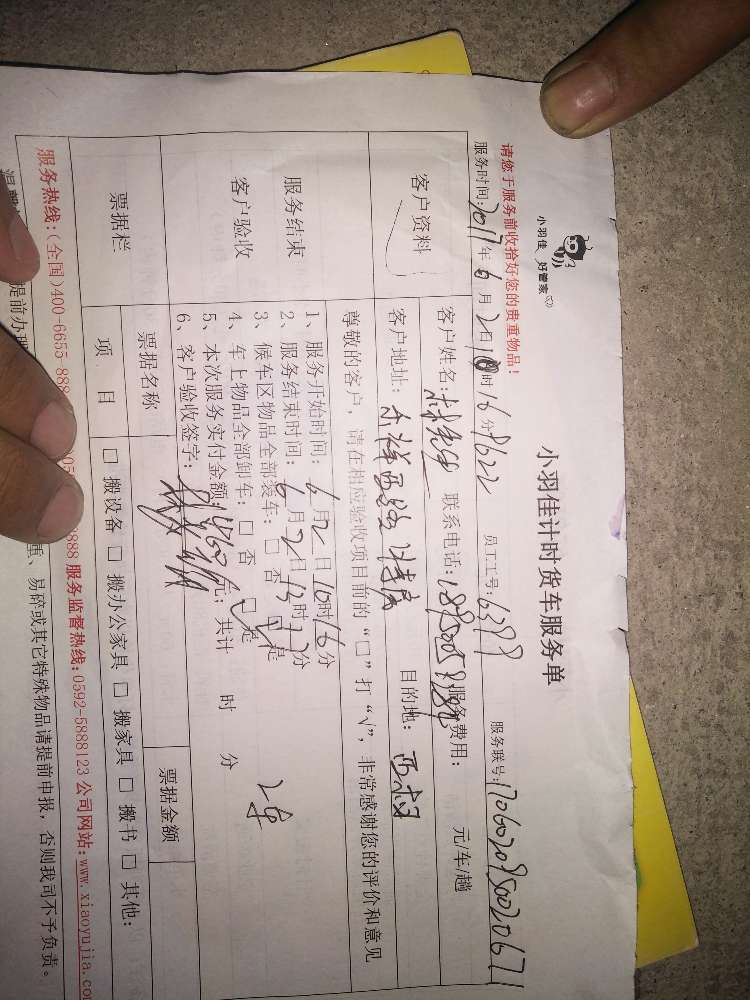 小羽佳 好管家
小羽佳计时货车服务单
请您于服务前收拾好您的贵重物品!
服务时间:2017年6月2日10时16分 员工工号:6399 服务联号:
客户资料
客户姓名: 联系电话: 服务费用: 元/车/趟
客户地址: 目的地:
尊敬的客户,请在相应验收项目前的“□”打“√”,非常感谢您的评价和意见
服务结束
客户验收
1、服务开始时间:6月2日10时16分
2、服务结束时间:6月2日13时 分
3、候车区物品全部装车:□否 □是
4、车上物品全部卸车:□否 □是
5、本次服务实付金额: 元;共计 时 分
6、客户验收签字:
2车
票据栏
票据名称 票据金额
项 目 □搬设备 □搬办公家具 □搬家具 □搬书 □其他:
服务热线:(全国)400-6655-888 8888 服务监督热线:0592-5888123 公司网站:www.xiaoyujia.co
提前办理 重、易碎或其它特殊物品请提前申报,否则我司不予负责。